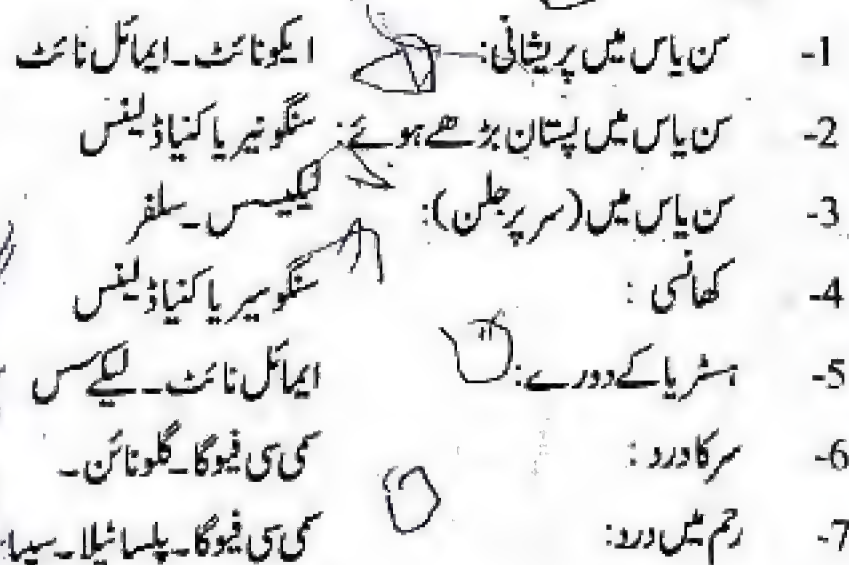 1- سن یاس میں پریشانی: ایکونائٹ۔ایمائل نائٹ
2- سن یاس میں پستان بڑھے ہوئے: سنگونیریا کنیاڈینس
3- سن یاس میں (سر پر جلن): لیکیسس۔سلفر
4- کھانسی : سنگوسیریا کنیاڈینس
5- ہسٹریا کے دورے: ایمائل نائٹ۔لیکےسس
6- سر کا درد : سمی سی فیوگا۔گلونائن۔
7- رحم میں درد: سمی سی فیوگا۔پلساٹیلا۔سیپیا۔